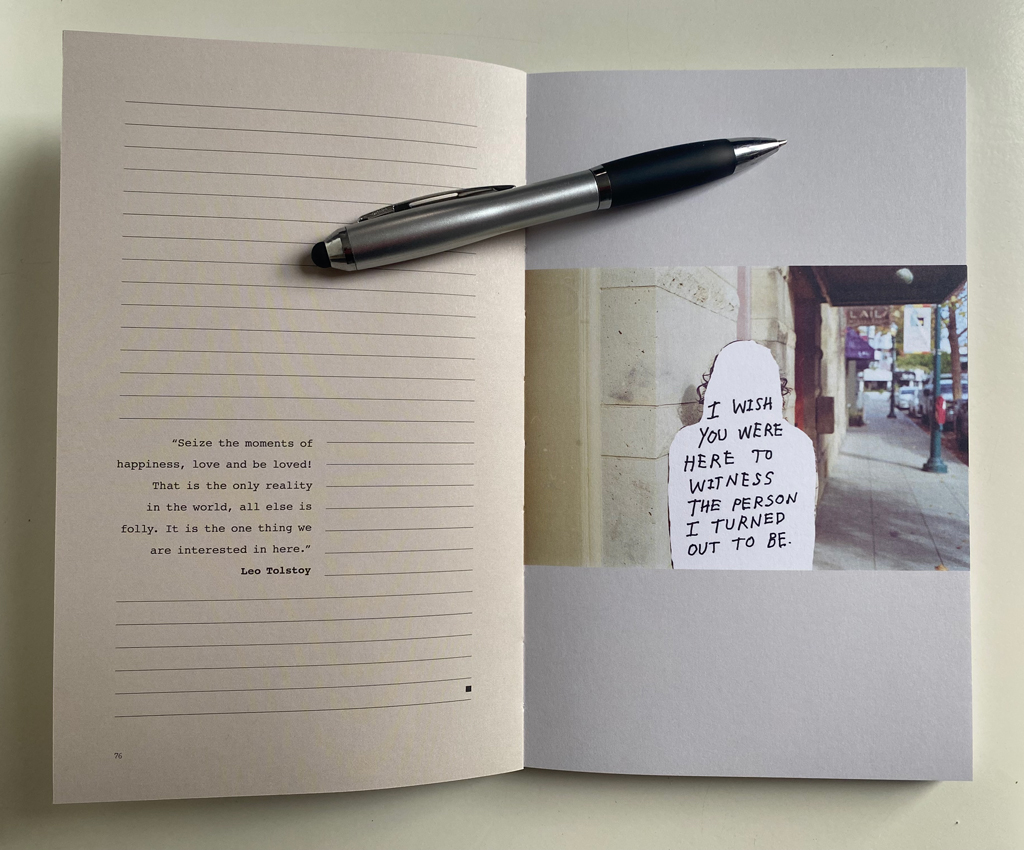 “Seize the moments of
happiness, love and be loved!
That is the only reality
in the world, all else is
folly. It is the one thing we
are interested in here.”
Leo Tolstoy
76
I WISH
YOU WERE
HERE TO
WITNESS
THE PERSON
I TURNED
OUT TO BE.